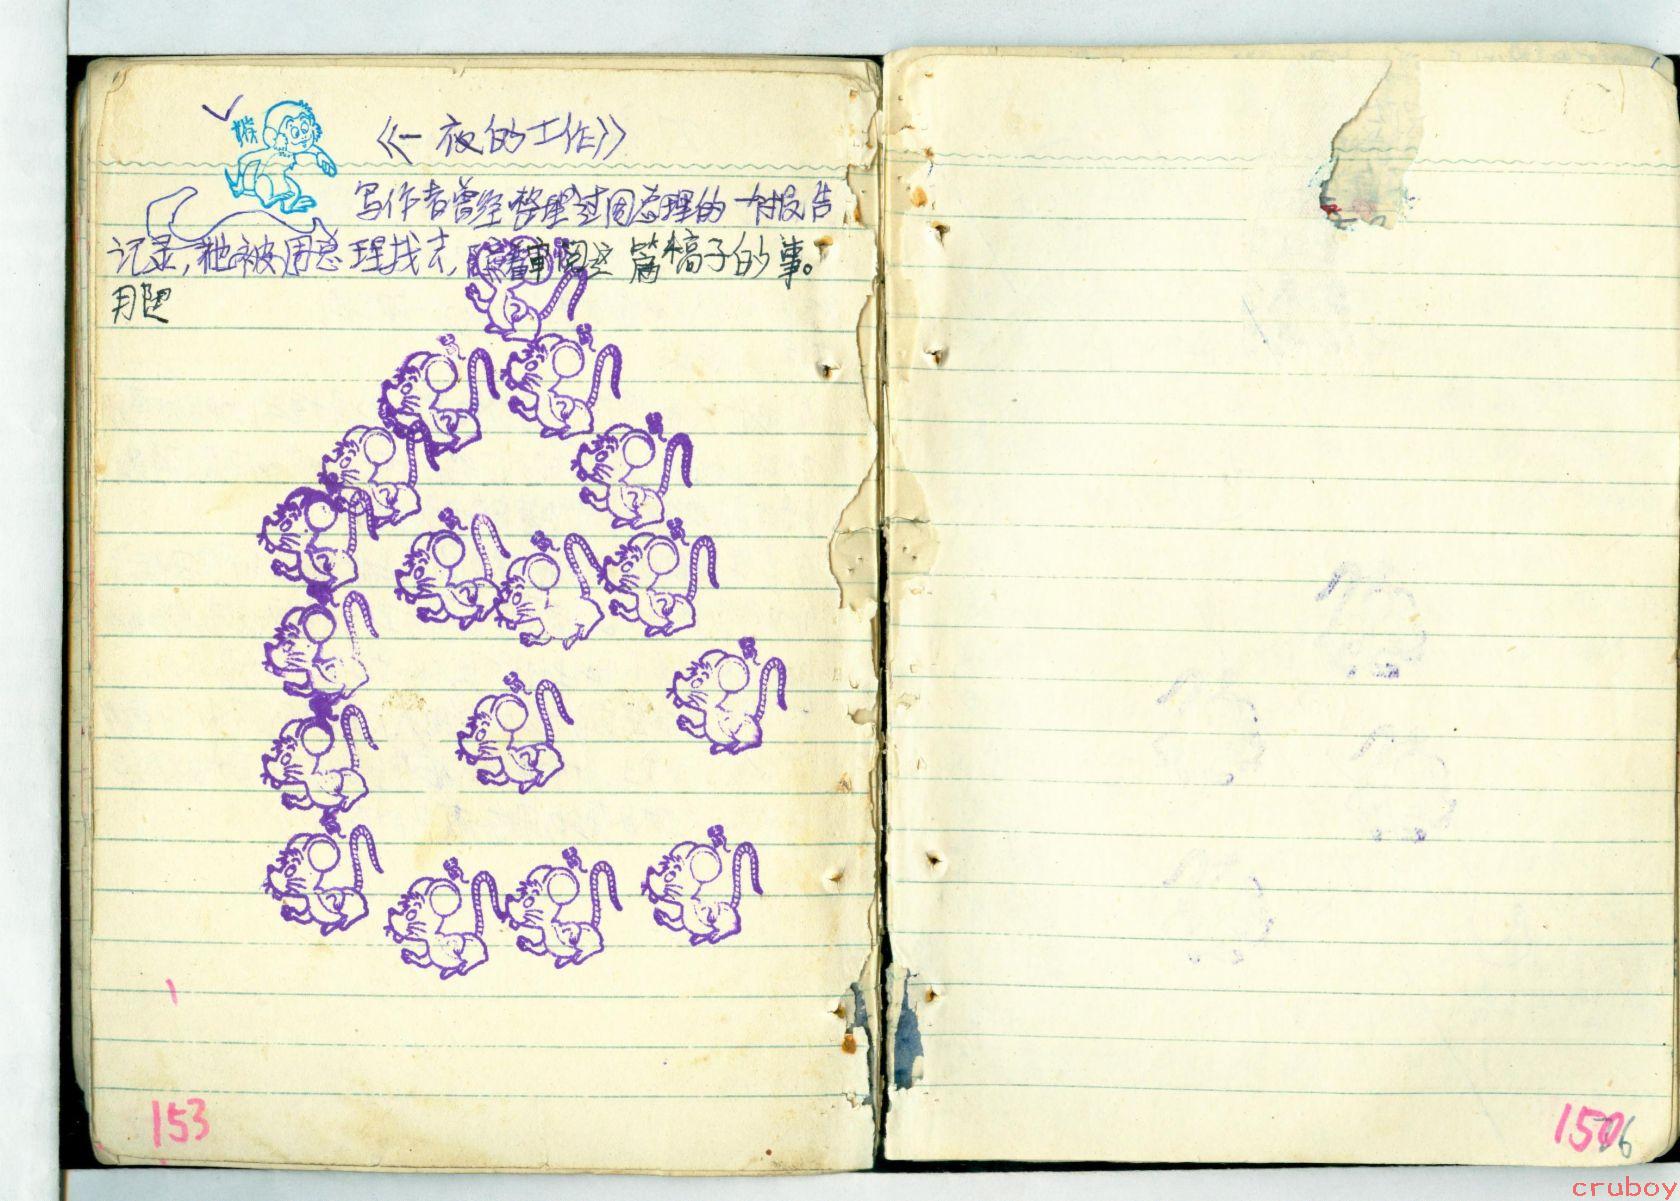 猴
《一夜的工作》
写作者曾经整理过周总理的一份报告
记录,他被周总理找去,审阅这篇稿子的事。
用
153
150
6
cruboy